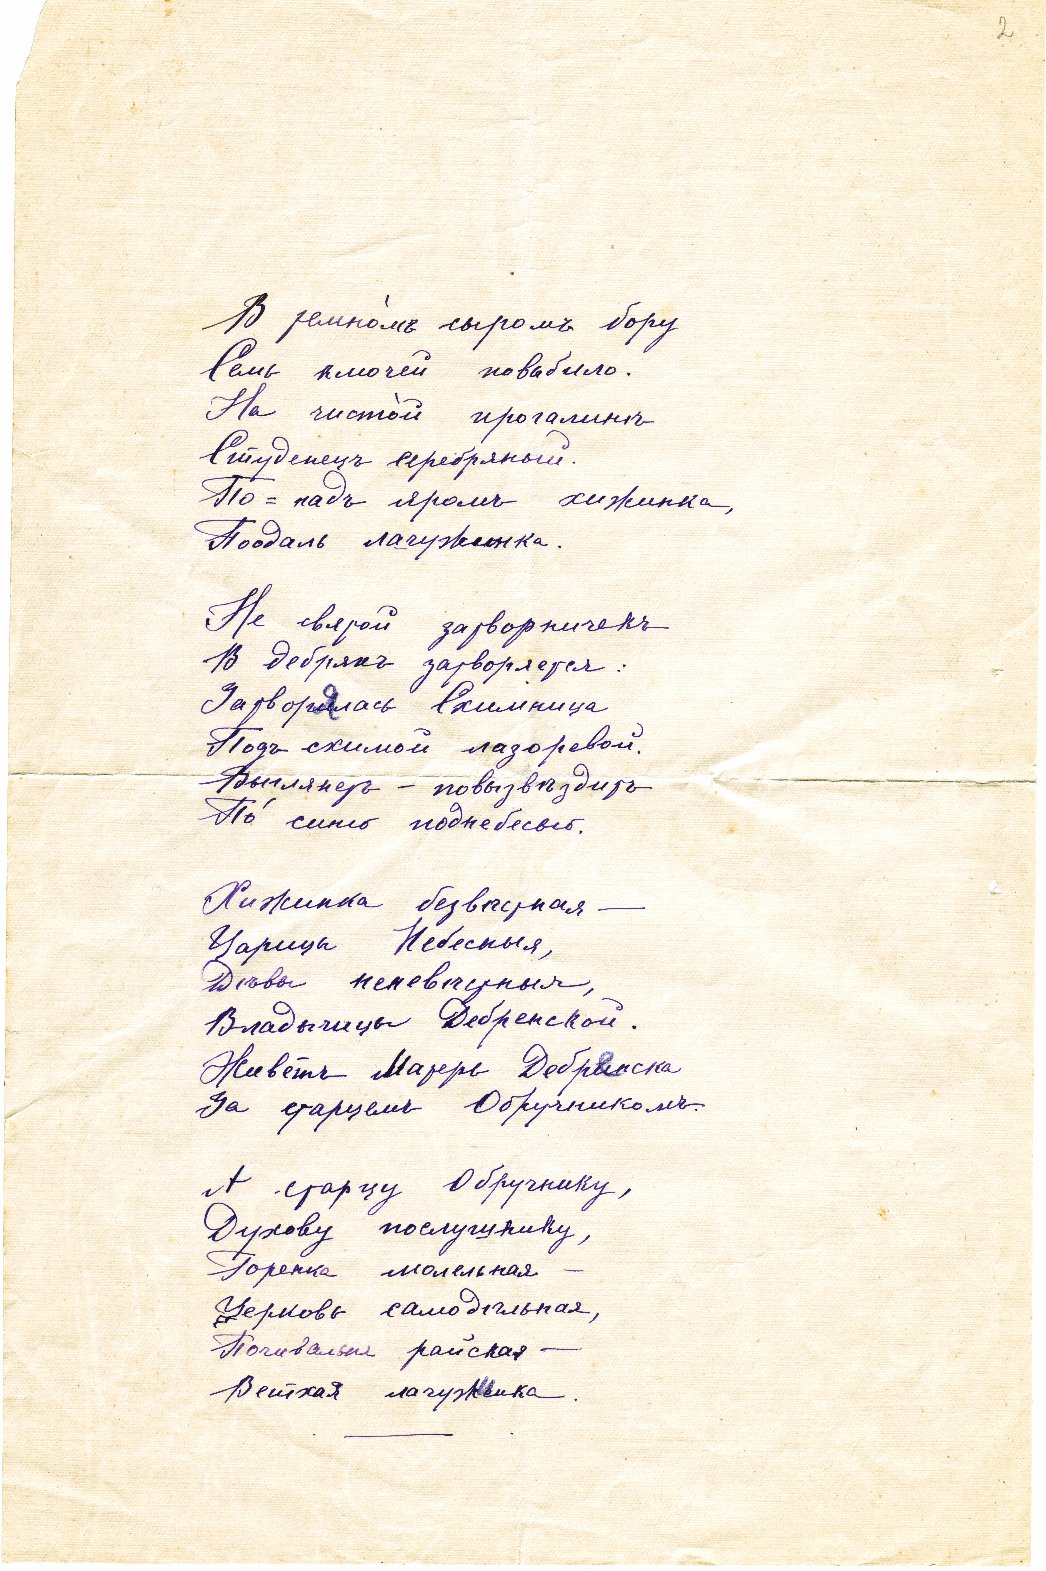 2
В темно́мъ сыромъ бору
Семь ключей повыбило.
На чисто́й прогалинѣ
Студенецъ серебряный.
По=надъ яромъ хижинка,
Поодаль лачужинка.
Не святой затворничекъ
В дебряхъ затворяется:
Затворилась Схимница
Подъ схимой лазоревой.
Выглянетъ – повызвѣздитъ
По́ синю поднебесью.
Хижинка безвѣстная —
Царицы Небесныя,
Дѣвы неневѣстныя,
Владычицы Дебренской.
Живетъ Матерь Дебренска
За старцемъ Обручникомъ.
А старцу Обручнику,
Духову послушнику,
Горенка молельная —
Церковь самодѣльная,
Почивальня райская —
Ветхая лачужинка.